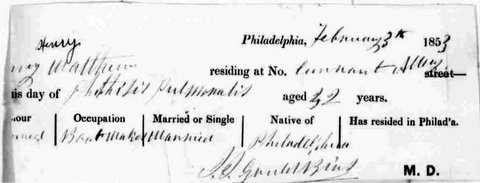 Henry
Philadelphia, February 3th 1853
Matthew residing at No. Currant Alley street
is day of Phthisis Pulmonalis aged 32 years.
our Occupation Married or Single Native of Has resided in Philad'a.
Boot Maker Married Philadelphia
M. D.